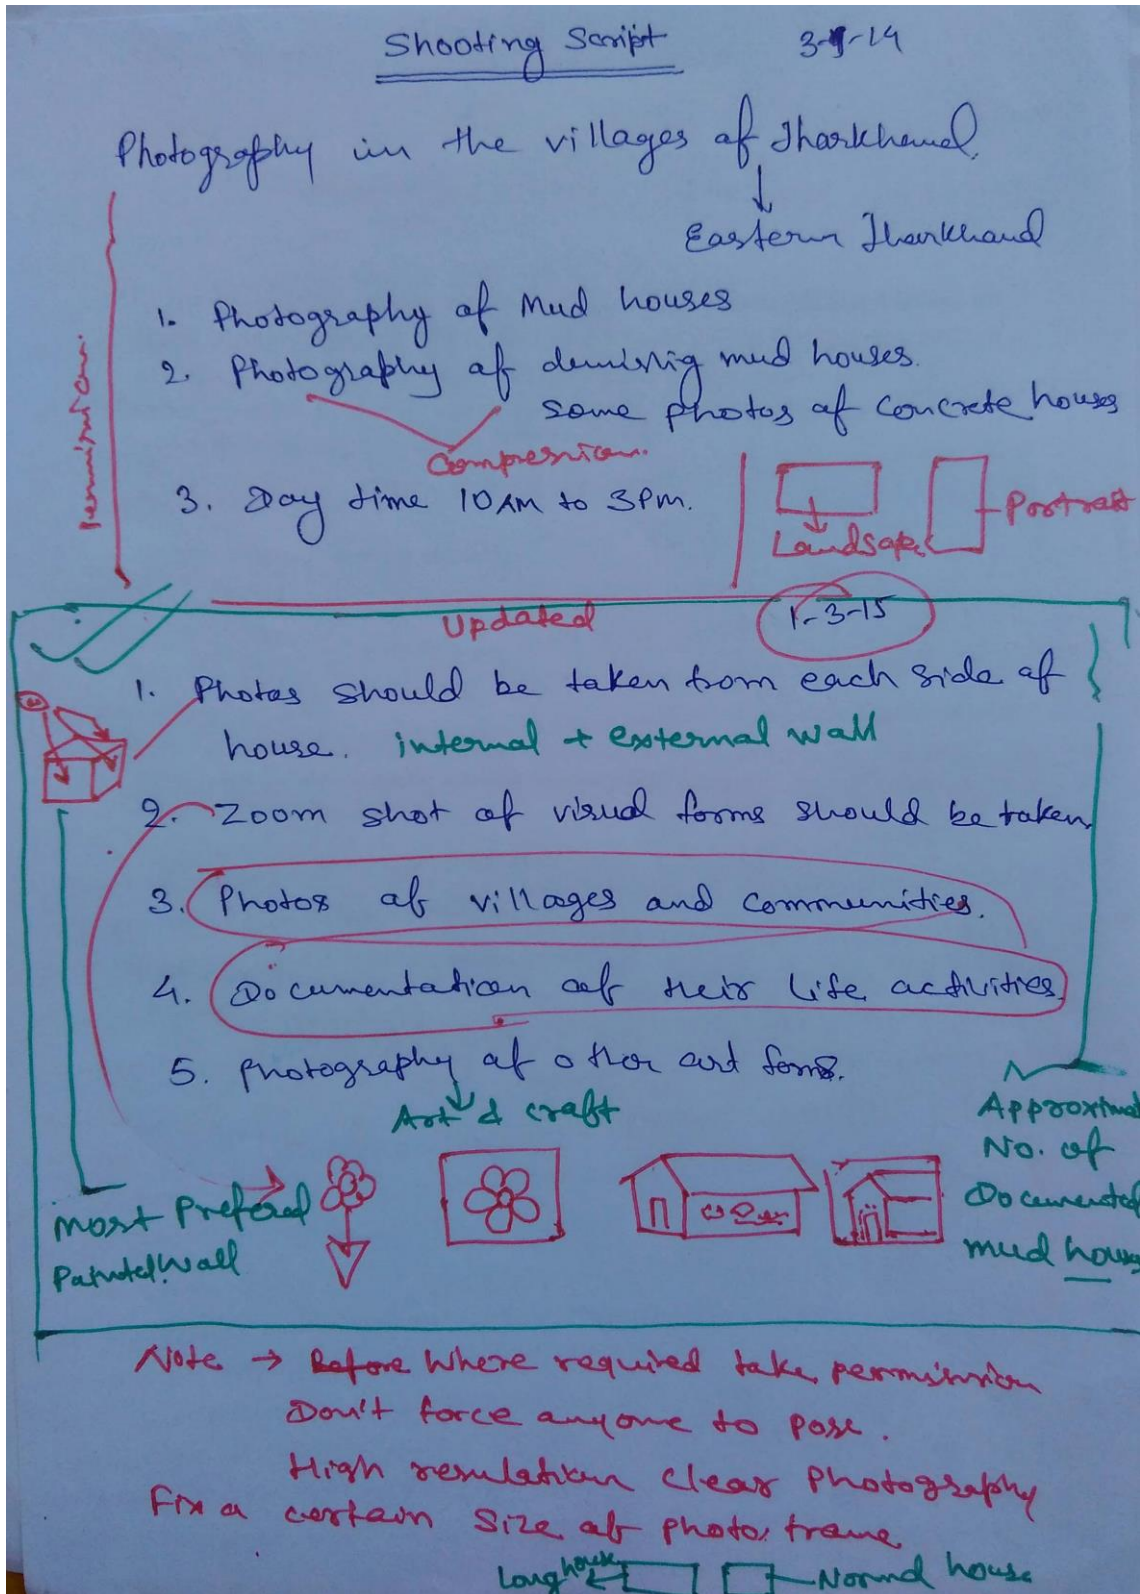 Shooting Script
3-9-14
Photography in the villages of Jharkhand.
Eastern Jharkhand
Permission.
1. Photography of Mud houses
2. Photography of mud houses.
some photos of concrete houses
3. Day time 10 AM to 3 PM.
Landsape
Portrait
Updated
1-3-15
1. Photos should be taken from each side of
house. internal + external wall
2. Zoom shot of visual forms should be taken
3. Photos of villages and communities.
4. Documentation of their life activities
5. Photography of other art forms.
Art & craft
Most Prefered
Painted Wall
Approximat
No. of
Documented
mud house
Note → Before Where required take permission
Don't force anyone to pose.
High resulation clear photography
Fix a certain size of photo frame
Long house
Normal house